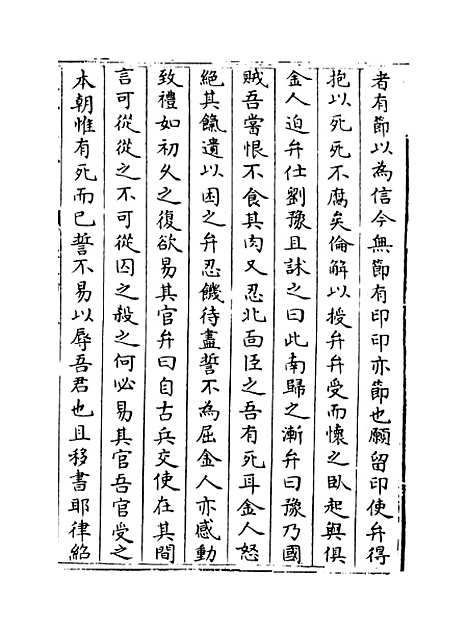 者有節以為信今無節有印印亦節也願留印使弁得
抱以死死不腐矣倫解以授弁弁受而懷之臥起與俱
金人迫弁仕劉豫且訹之曰此南歸之漸弁曰豫乃國
賊吾嘗恨不食其肉又忍北面臣之吾有死耳金人怒
絕其餼遺以困之弁忍饑待盡誓不為屈金人亦感動
致禮如初久之復欲易其官弁曰自古兵交使在其間
言可從從之不可從囚之殺之何必易其官吾官受之
本朝惟有死而已誓不易以辱吾君也且移書耶律紹